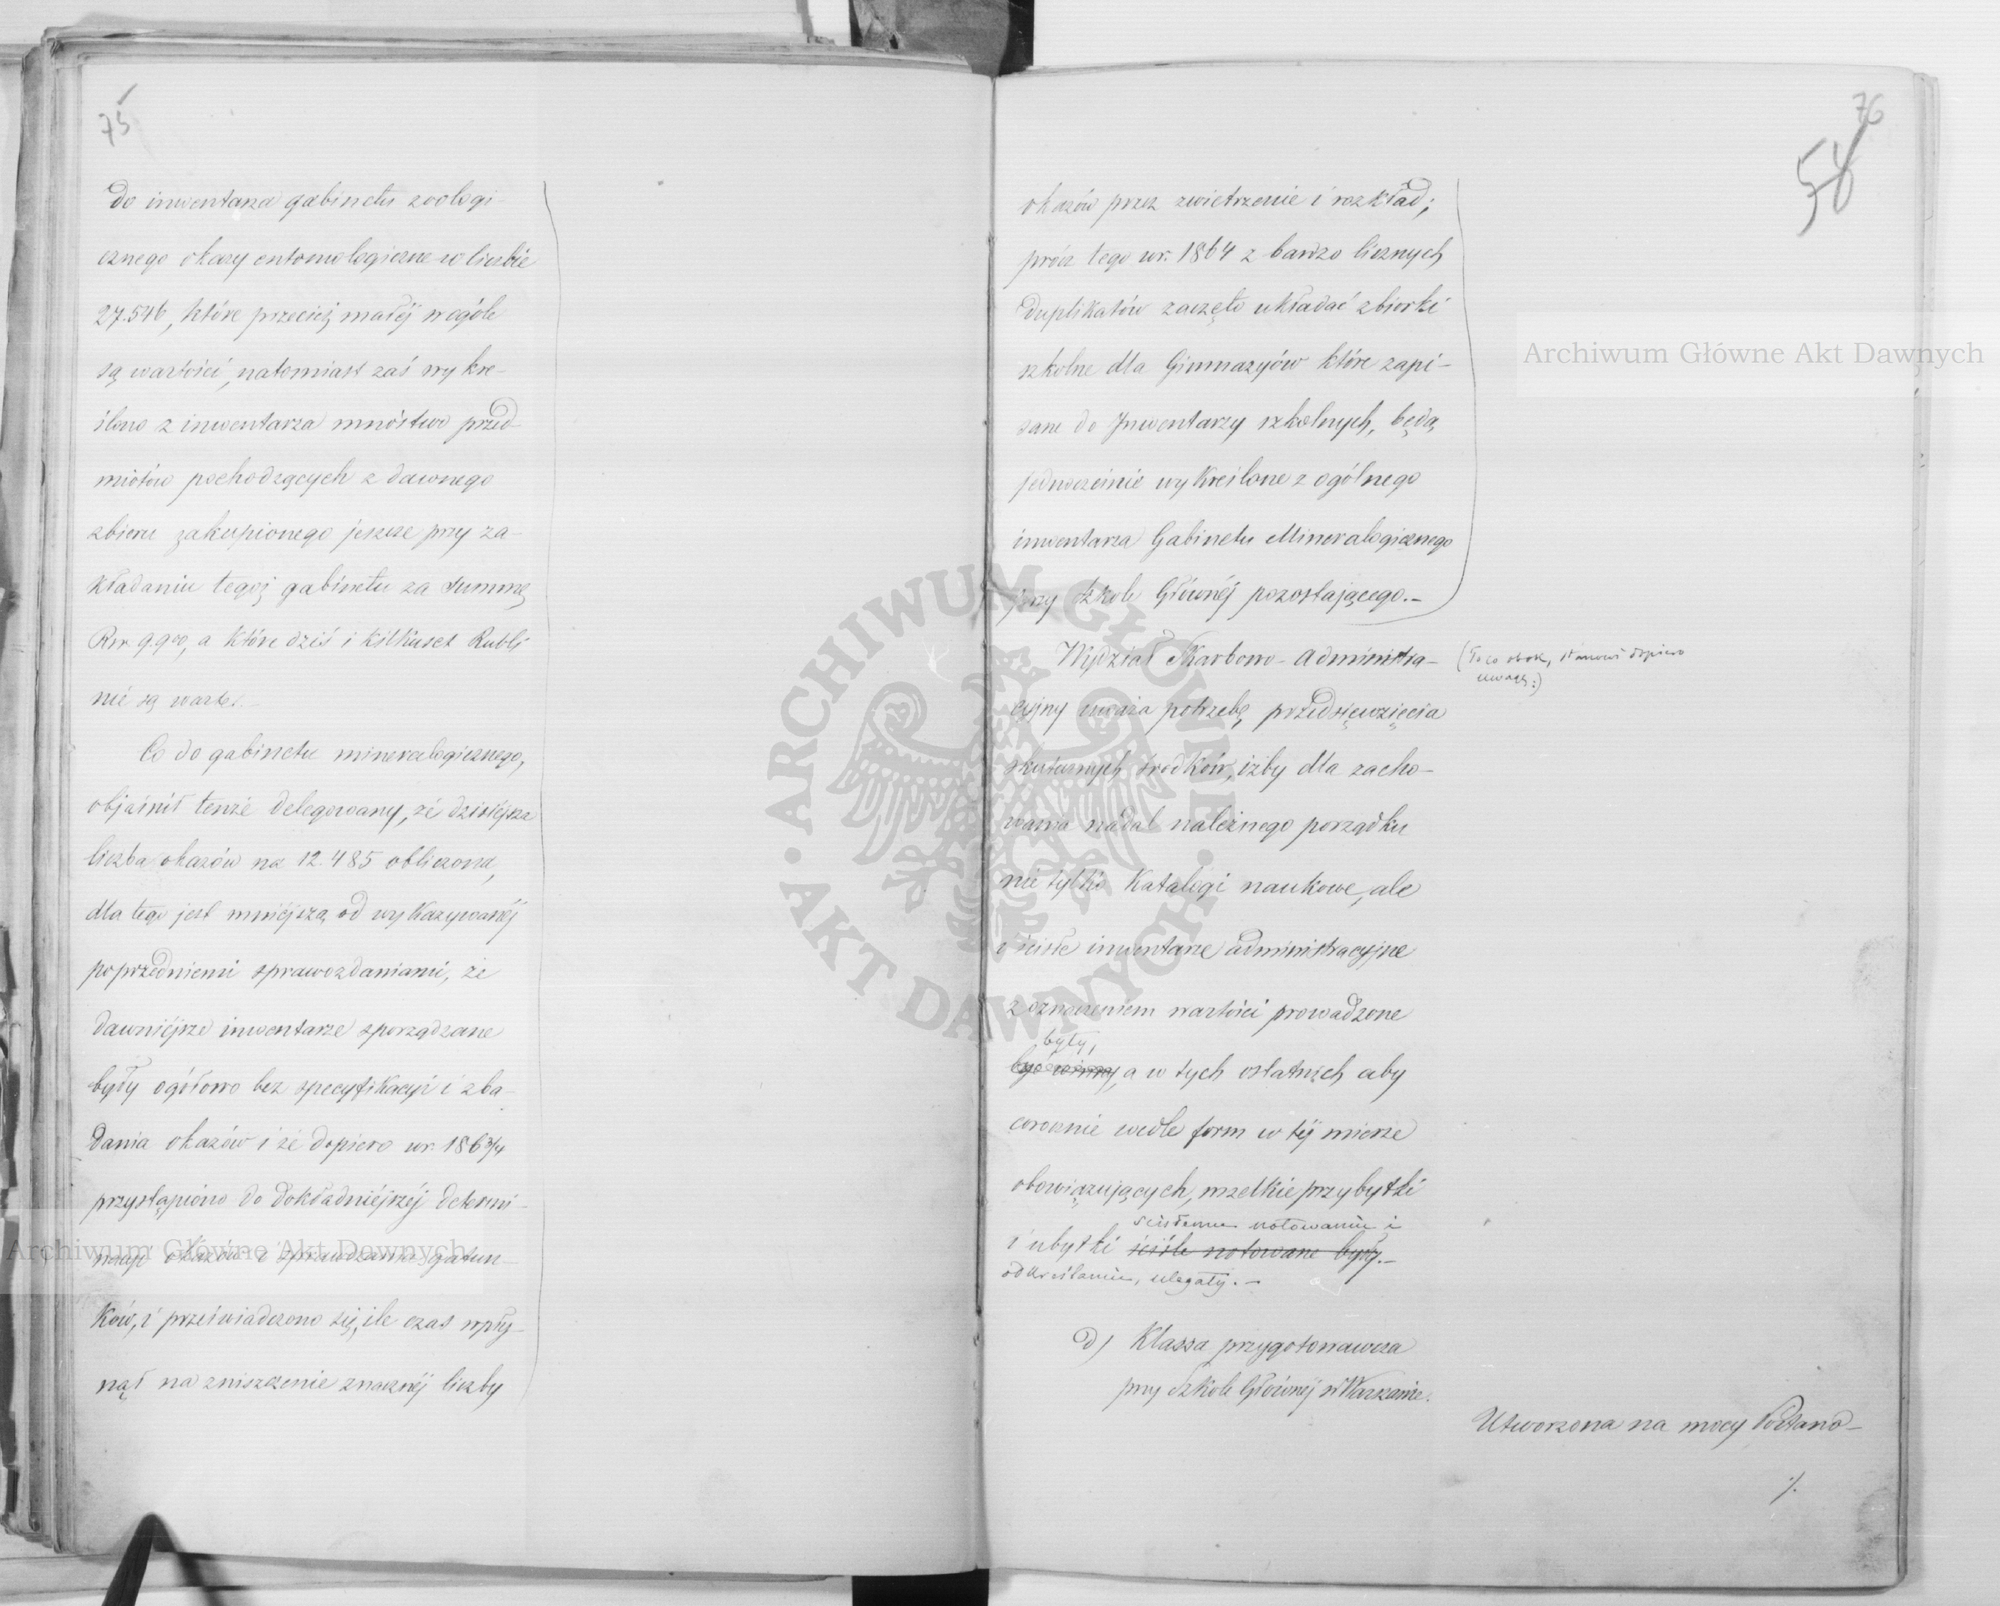 75
do inwentarza gabinetu zoologi-
cznego okazy entomologiczne w liczbie
27.546, które przecież małéj w ogóle
są wartości, natomiast zaś wykre-
ślono z inwentarza mnóstwo przed-
miotów pochodzących z dawnego
zbioru zakupionego jeszcze przy za-
kładaniu tegoż gabinetu za summę
Rsr. 9.900, a które dziś i kilkuset Rubli
nie są warte.
Co do gabinetu mineralogicznego,
objaśnił tenże delegowany, że dzisiejsza
liczba okazów na 12.485 obliczona,
dla tego jest mniejszą od wykazywanéj
poprzedniemi sprawozdaniami, że
dawniejsze inwentarze sporządzane
były ogółowo bez specyfikacyi i zba-
dania okazów i że dopiero w r. 1863/4
przystąpiono do dokładniejszéj determi-
nacyi okazów i sprawdzania gatun-
ków, i przeświadczono się, ile czas wpły-
nął na zniszczenie znacznéj liczby
76
58
okazów przez zwietrzenie i rozkład;
prócz tego w r. 1864 z bardzo licznych
duplikatów zaczęto układać zbiorki
szkolne dla Gimnazyów które zapi-
sane do Inwentarzy szkolnych, będą
jednocześnie wykreślone z ogólnego
inwentarza Gabinetu Mineralogicznego
przy Szkole Głównéj pozostającego.-
Wydział Skarbowo-Administra-
cyjny uważa potrzebę przedsięwzięcia
skutecznych środków, iżby dla zacho-
wania nadal należnego porządku
nie tylko Katalogi naukowe, ale
i ścisłe inwentarze administracyjne
z oznaczeniem wartości prowadzone
były,
być winny, a w tych ostatnich aby
corocznie wedle form w téj mierze
obowiązujących, wszelkie przybytki
ścisłemu notowaniu i
i ubytki ściśle notowane były.-
odkreślaniu, ulegały.-
d) Klassa przygotowawcza
przy Szkole Głównéj w Warszawie.
(To co obok, stanowi dopiero
uwagę:)
Utworzona na mocy Postano-
./.
Archiwum Główne Akt Dawnych
Archiwum Główne Akt Dawnych
ARCHIWUM GŁÓWNE · AKT DAWNYCH ·